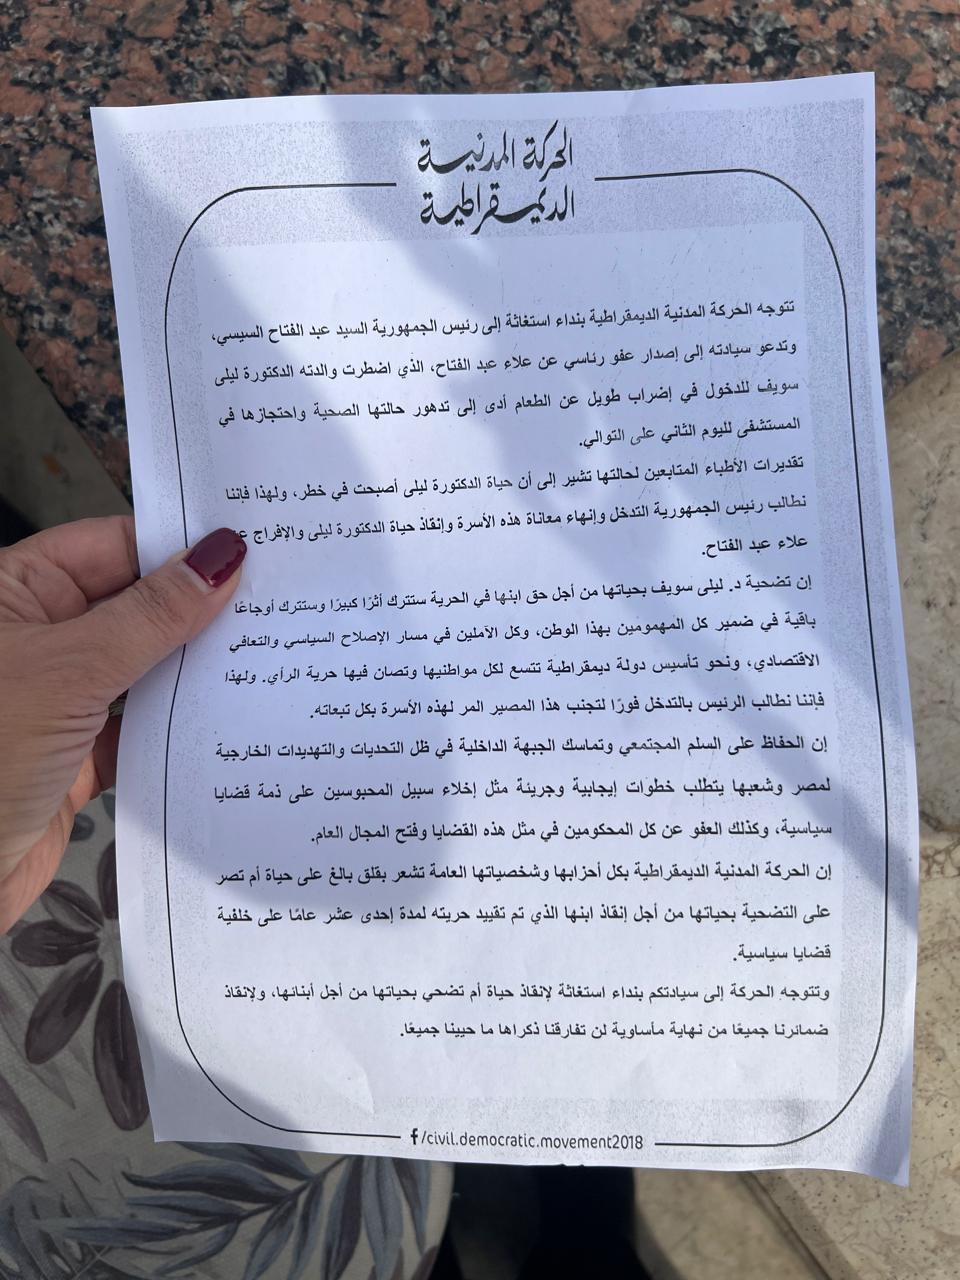 الحركة المدنية
الديمقراطية
تتوجه الحركة المدنية الديمقراطية بنداء استغاثة إلى رئيس الجمهورية السيد عبد الفتاح السيسي،
وتدعو سيادته إلى إصدار عفو رئاسي عن علاء عبد الفتاح، الذي اضطرت والدته الدكتورة ليلى
سويف للدخول في إضراب طويل عن الطعام أدى إلى تدهور حالتها الصحية واحتجازها في
المستشفى لليوم الثاني على التوالي.
تقديرات الأطباء المتابعين لحالتها تشير إلى أن حياة الدكتورة ليلى أصبحت في خطر، ولهذا فإننا
نطالب رئيس الجمهورية التدخل وإنهاء معاناة هذه الأسرة وإنقاذ حياة الدكتورة ليلى والإفراج
علاء عبد الفتاح.
إن تضحية د. ليلى سويف بحياتها من أجل حق ابنها في الحرية ستترك أثرًا كبيرًا وستترك أوجاعًا
باقية في ضمير كل المهمومين بهذا الوطن، وكل الآملين في مسار الإصلاح السياسي والتعافي
الاقتصادي، ونحو تأسيس دولة ديمقراطية تتسع لكل مواطنيها وتصان فيها حرية الرأي. ولهذا
فإننا نطالب الرئيس بالتدخل فورًا لتجنب هذا المصير المر لهذه الأسرة بكل تبعاته.
إن الحفاظ على السلم المجتمعي وتماسك الجبهة الداخلية في ظل التحديات والتهديدات الخارجية
لمصر وشعبها يتطلب خطوات إيجابية وجريئة مثل إخلاء سبيل المحبوسين على ذمة قضايا
سياسية، وكذلك العفو عن كل المحكومين في مثل هذه القضايا وفتح المجال العام.
إن الحركة المدنية الديمقراطية بكل أحزابها وشخصياتها العامة تشعر بقلق بالغ على حياة أم تصر
على التضحية بحياتها من أجل إنقاذ ابنها الذي تم تقييد حريته لمدة إحدى عشر عامًا على خلفية
قضايا سياسية.
وتتوجه الحركة إلى سيادتكم بنداء استغاثة لإنقاذ حياة أم تضحي بحياتها من أجل أبنائها، ولإنقاذ
ضمائرنا جميعًا من نهاية مأساوية لن تفارقنا ذكراها ما حيينا جميعًا.
f/civil.democratic.movement2018